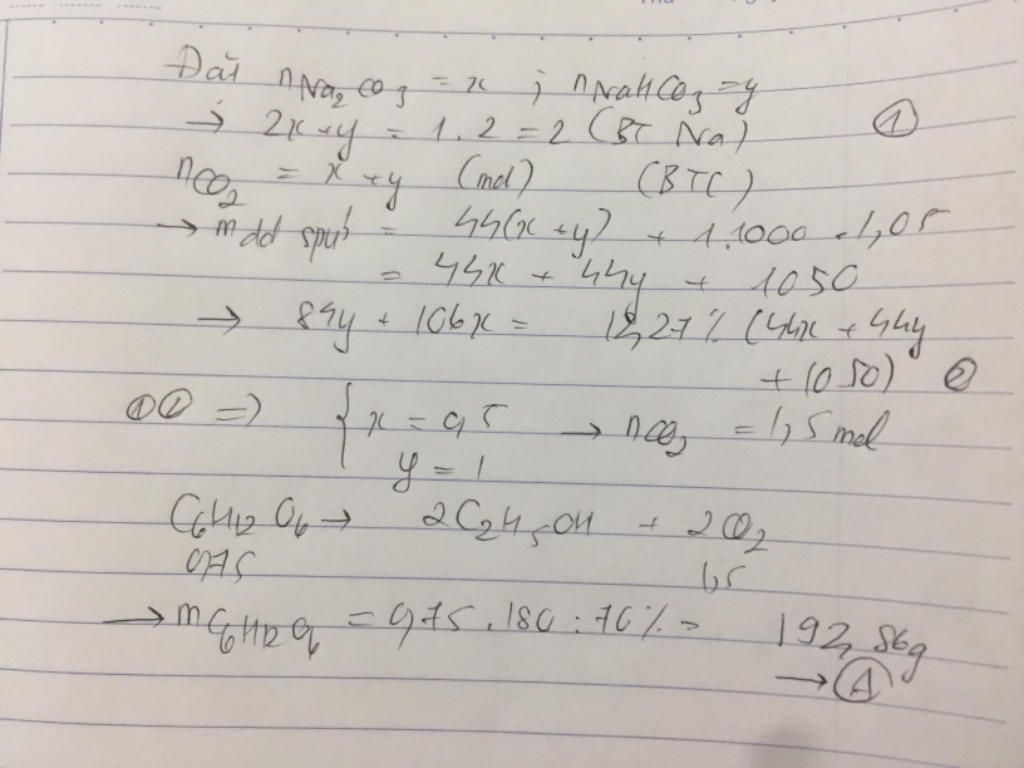 Đặt nNa₂CO₃ = x ; nNaHCO₃ = y
→ 2x+y = 1.2 = 2 (BT Na) ①
nCO₂ = x+y (mol) (BTC)
→ mdd spư = 44(x+y) + 1.1000.1,05
= 44x + 44y + 1050
→ 84y + 106x = 12,27% (44x + 44y
+ 1050) ②
①② => { x = 0,5 → nCO₂ = 1,5 mol
y = 1
C₆H₁₂O₆ → 2C₂H₅OH + 2CO₂
0,75 1,5
→ mC₆H₁₂O₆ = 0,75.180:70% = 192,86g
→ Ⓐ